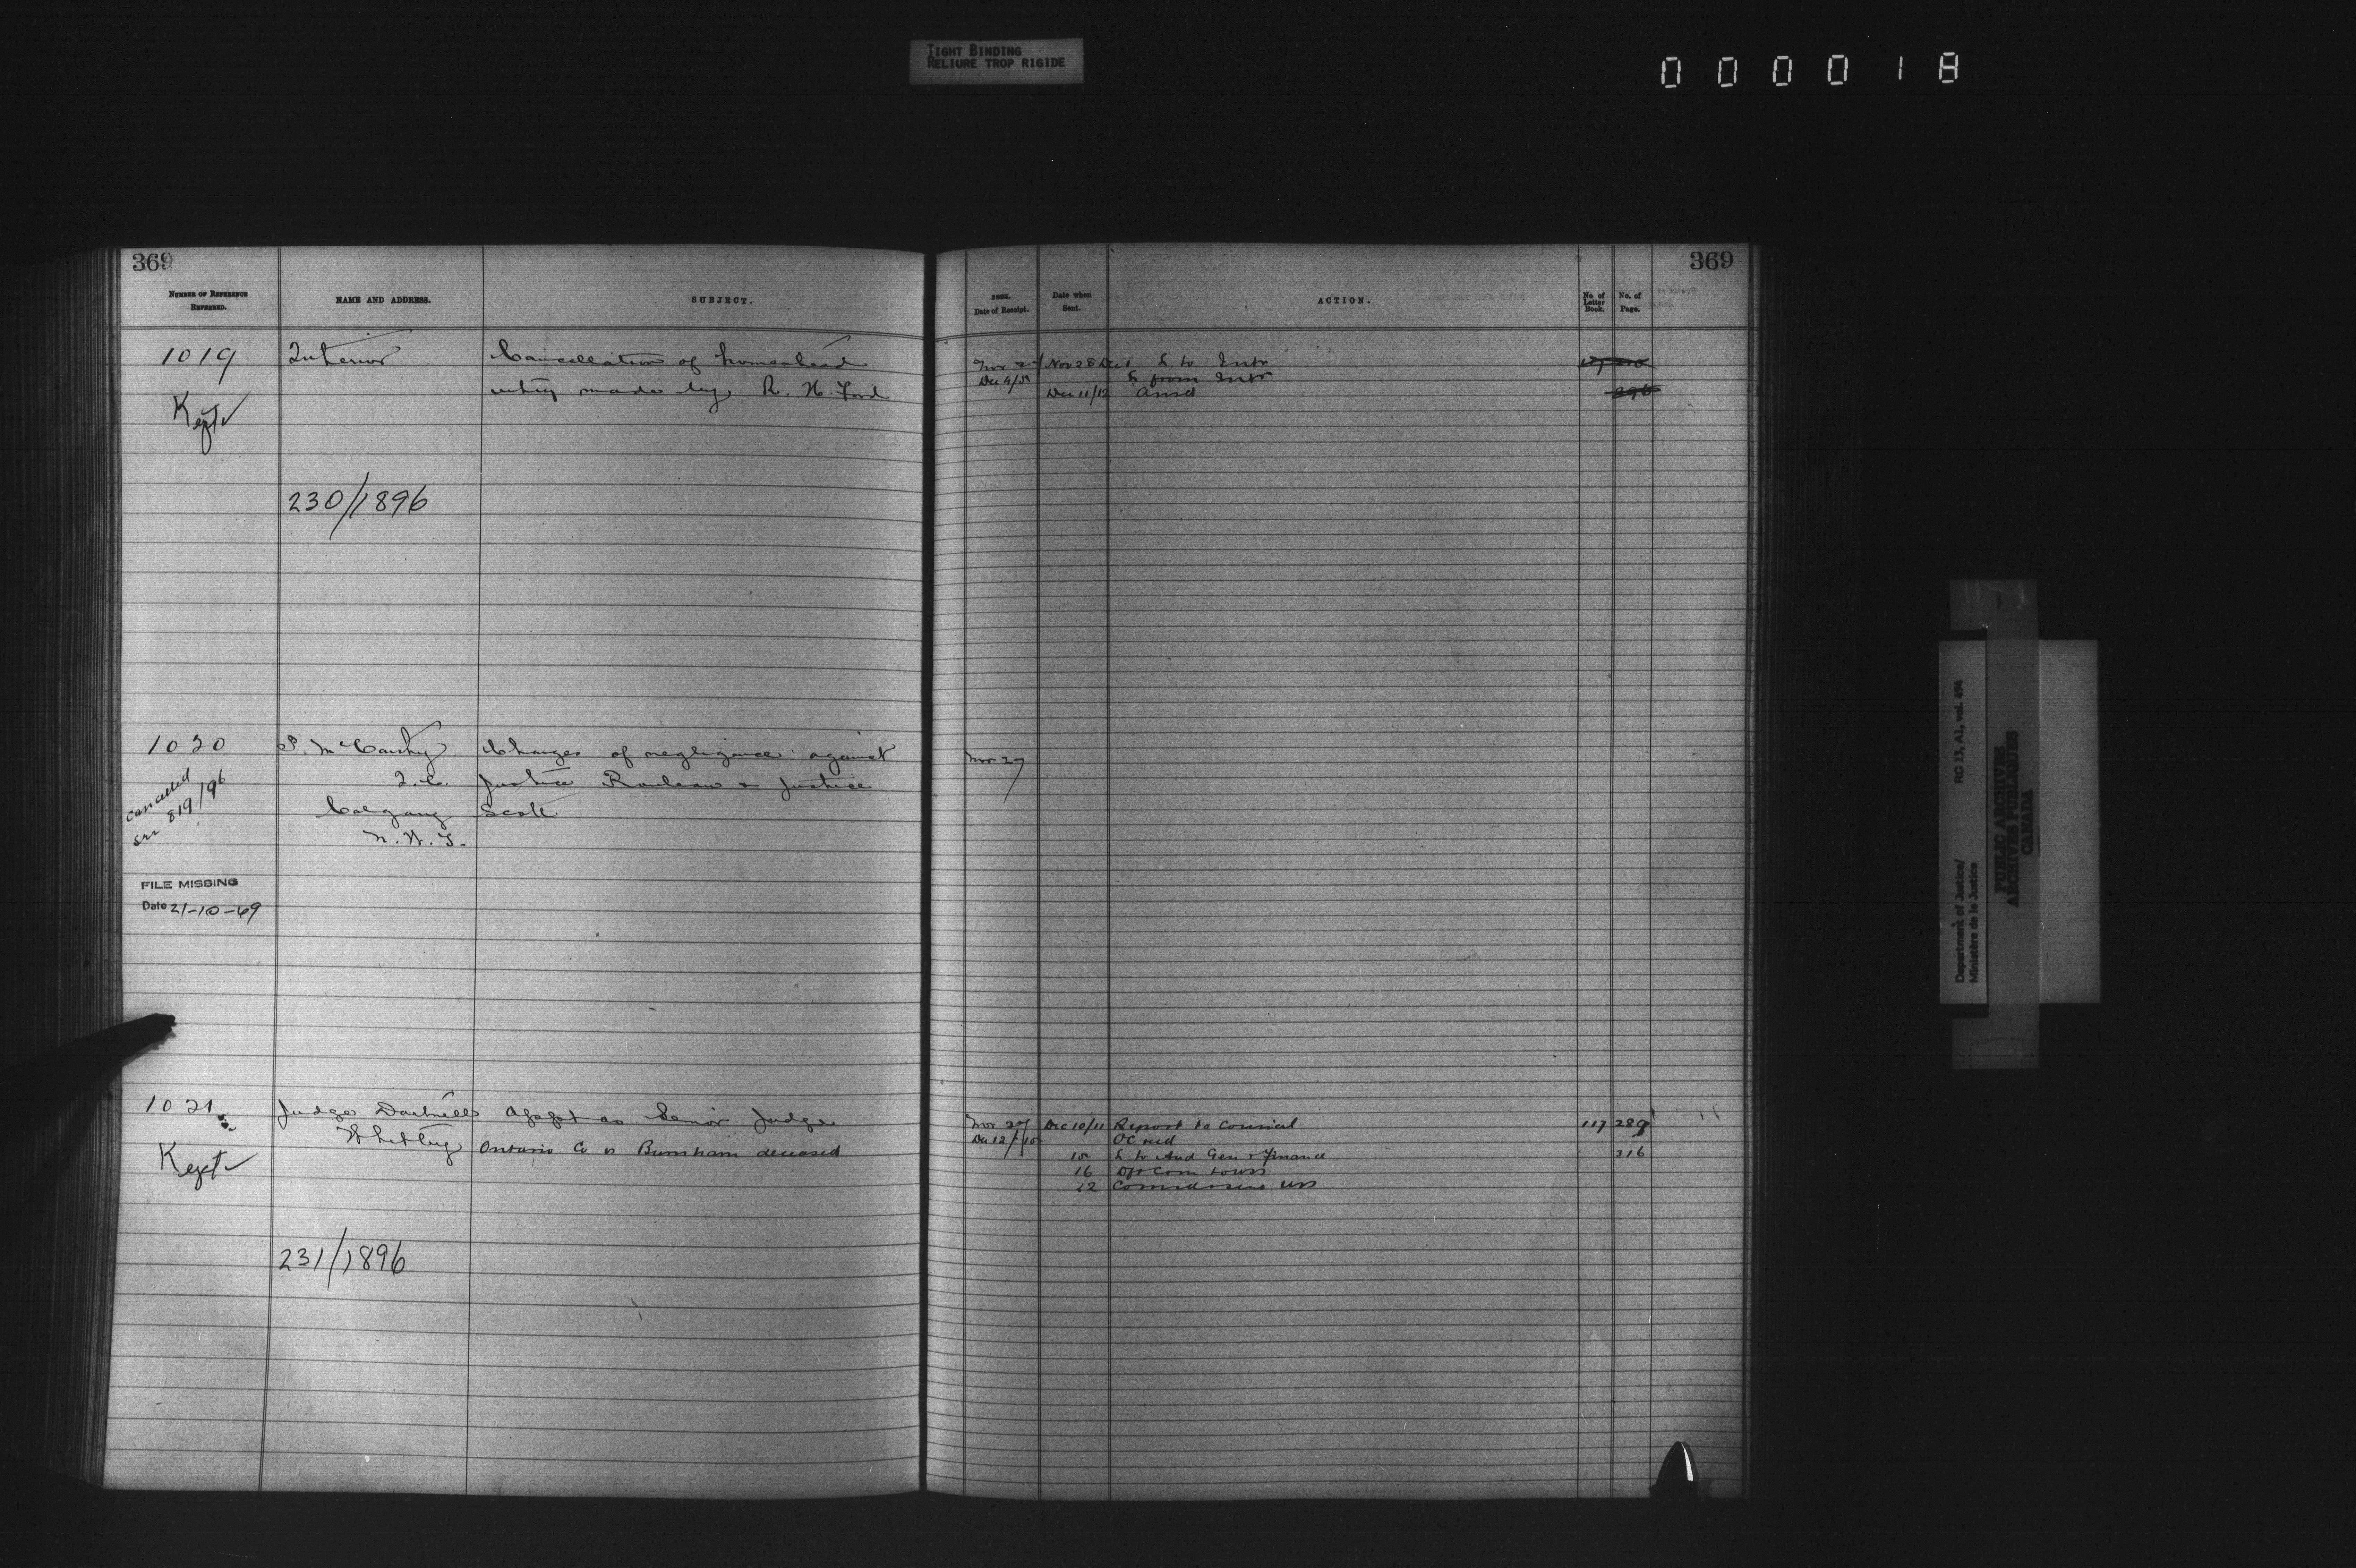 TIGHT BINDING
RELIURE TROP RIGIDE
000018
369
NUMBER OF REFERENCE
REFERRED.
NAME AND ADDRESS.
SUBJECT.
1019
Interior
Cancellation of homestead
entry made by R. H. Ford
Kept
230/1896
1020
P. McCarthy
Q.C.
Calgary
N.W.T.
Charges of negligence against
Justice Rouleau & Justice
Scott
cancelled
see 819/96
FILE MISSING
Date 21-10-69
1021
Judge Dartnell
Whitby
Appt as Senior Judge
Ontario Co v Burnham deceased
Kept
231/1896
369
Date of Receipt.
Date when
Sent.
ACTION.
No. of
Letter
Book.
No. of
Page.
Nov 27 Nov 28 Dec 1 L to Intr
Dec 4 L from Intr
Dec 11/12 Ansd
Nov 27
Nov 27 Dec 10/11 Report to Council 117 289
Dec 12 OC recd
L to Aud Gen & Finance 316
16
12
Department of Justice/ RG 13, A1, vol. 494
Ministère de la Justice
PUBLIC ARCHIVES
ARCHIVES PUBLIQUES
CANADA